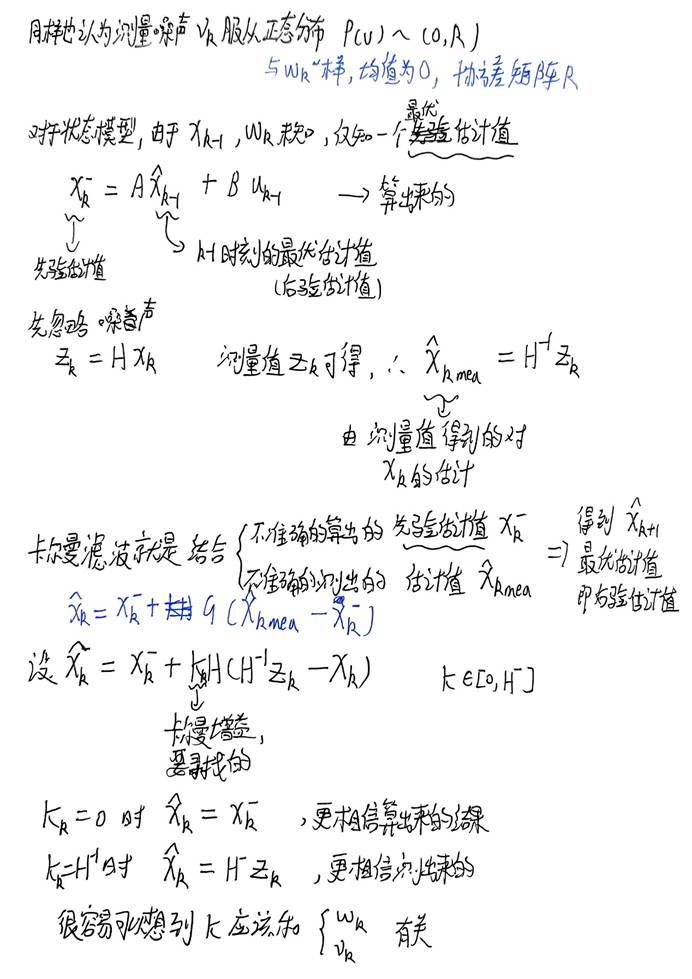 同样也认为测量噪声 v_k 服从正态分布 P(v) ~ (0, R)
与 w_k 一样, 均值为0, 协方差矩阵 R
对于状态模型, 由于 x_{k-1}, w_k 未知, 仅知一个最优估计值
x_k^- = A x̂_{k-1} + B u_{k-1} → 算出来的
先验估计值 k-1时刻的最优估计值
(后验估计值)
先忽略噪声
z_k = H x_k 测量值 z_k 可得, ∴ x̂_{k mea} = H^{-1} z_k
由测量值得到的对
x_k 的估计
卡尔曼滤波就是结合 { 不准确的算出的 先验估计值 x_k^-
不准确的测出的 估计值 x̂_{k mea}
⇒ 得到 x̂_{k+1}
最优估计值
即后验估计值
x̂_k = x_k^- + G (x̂_{k mea} - x̂_k^-)
设 x̂_k = x_k^- + k_k H (H^{-1} z_k - x_k) k∈[0, H^-]
卡尔曼增益,
要寻找的
k_k = 0 时 x̂_k = x_k^- , 更相信算出来的结果
k_k = H^{-1} 时 x̂_k = H^- z_k , 更相信测出来的
很容易可以想到 k 应该和 { w_k
v_k 有关